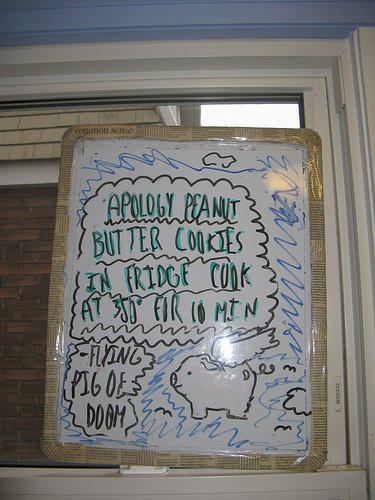 common sense
APOLOGY PEANUT
BUTTER COOKIES
IN FRIDGE COOK
AT 350° FOR 10 MIN
-FLYING
PIG OF
DOOM